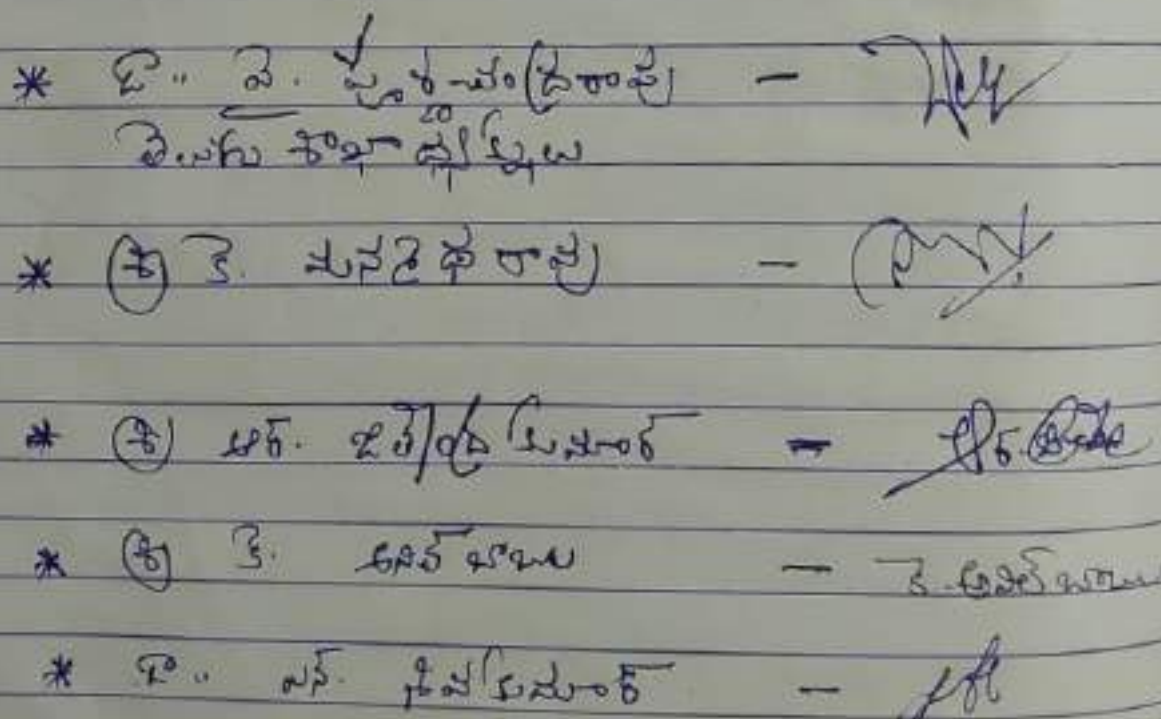 * డా.. వై. పూర్ణచంద్రరావు -
తెలుగు శాఖాధ్యక్షులు
* శ్రీ కె. రావు -
* శ్రీ ఆర్. జితేంద్ర కుమార్ - ఆర్.
* శ్రీ కె. అనిల్ బాబు - కె. అనిల్ బాబు
* డా.. ఎన్. శివకుమార్ -